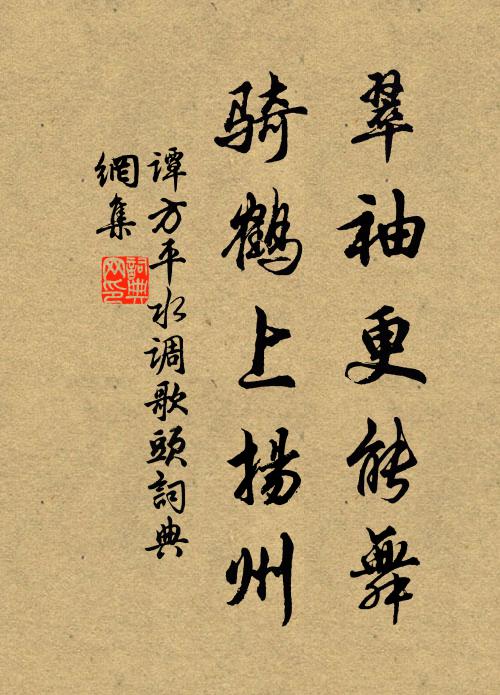 翠袖更能舞
骑鹤上揚州
谭方平水调歌頭詞典
網集
詞典
网印